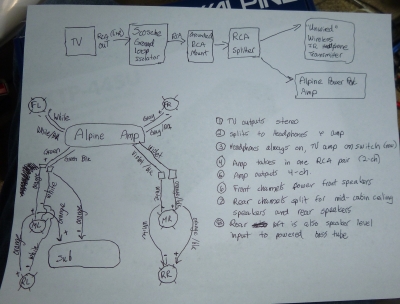 TV
RCA
out
Scosche
Ground
loop
isolator
RCA
RCA
Mount
RCA
Splitter
"Unwired"
Wireless
IR headphone
Transmitter
Alpine Power Pak
Amp
FL
FR
White
White/Blk
Grey
Grey/Blk
Alpine Amp
Green
Green/Blk
Violet
Violet/Blk
White
orange
orange
orange
orange
White
Sub
MR
RR
① TV outputs stereo
② Splits to headphones & amp
③ Headphones always on, TV amp on switch
④ Amp takes in one RCA pair (2-ch)
Amp outputs 4-ch
⑥ Front channels power front speakers
⑦ Rear channels split for mid-cabin ceiling
speakers and rear speakers
Rear left is also speaker level
input to powered bass tube